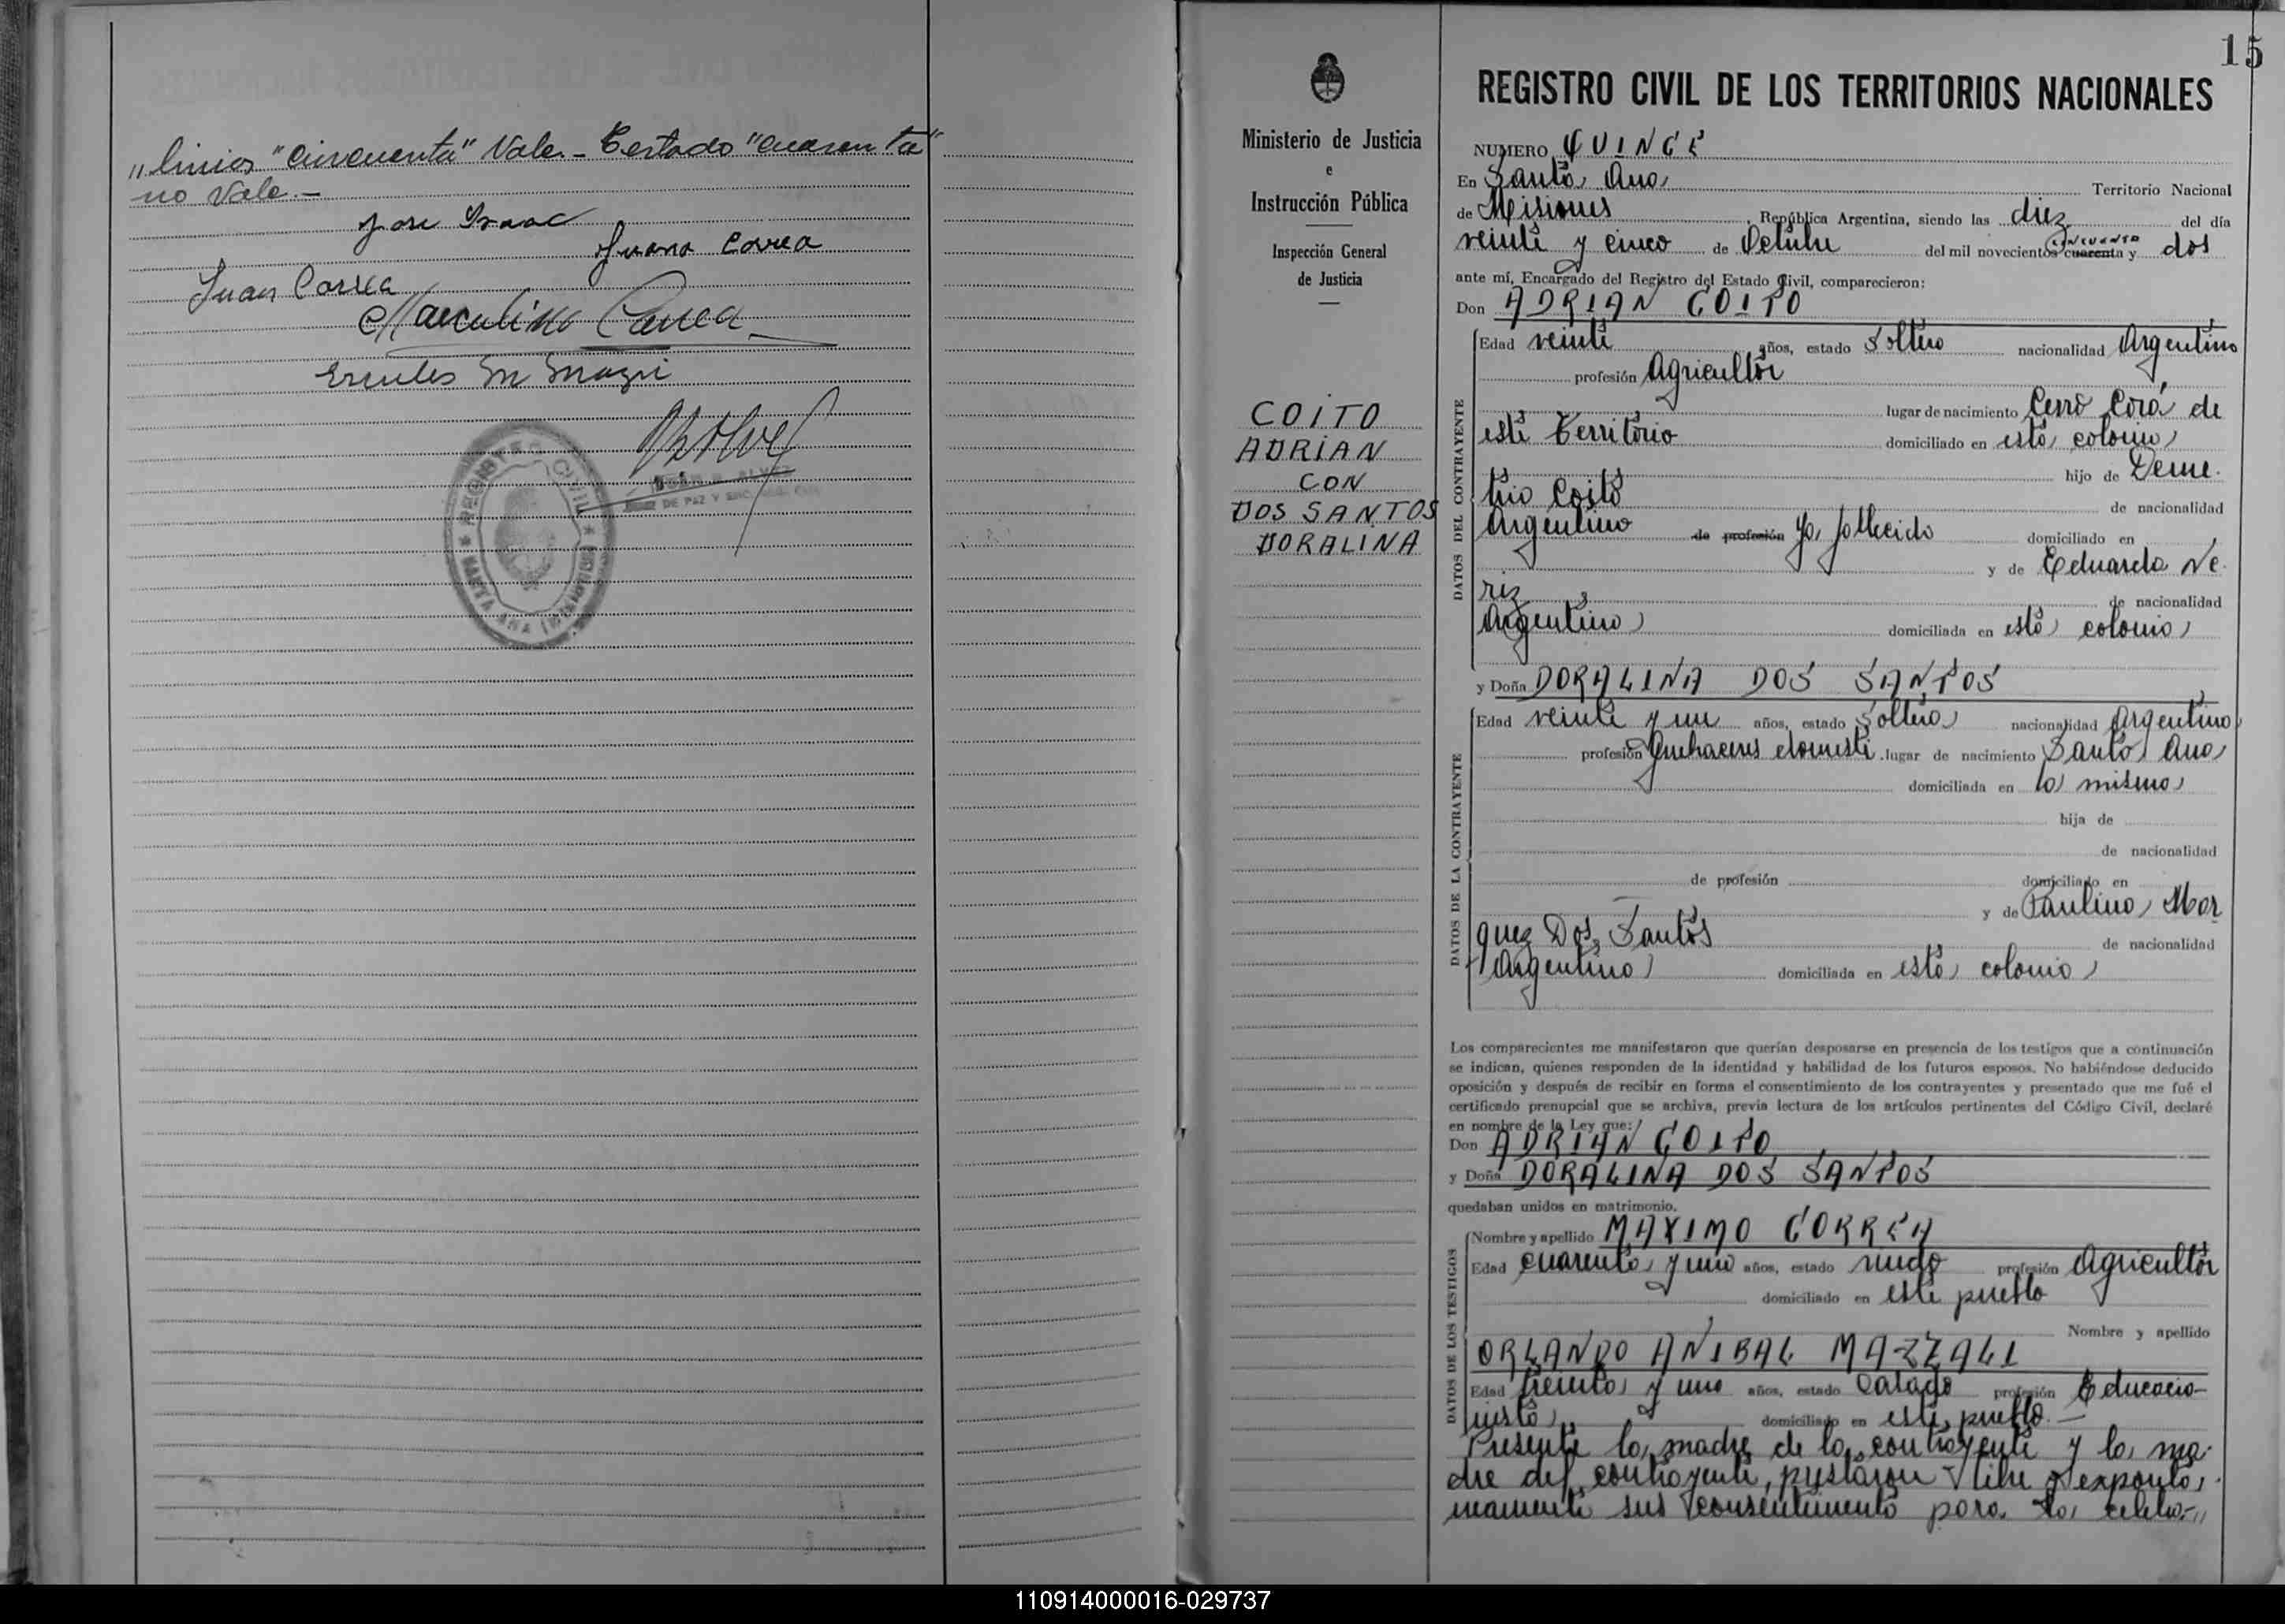 „linias "cincuenta" Vale.- Testado "cuarenta"
no Vale.-
Jose Isaac
Juana Correa
Juan Correa
Marculino Correa
Erculés M Mazri
REGISTRO CIVIL
SANTA ANA (MISIONES)
DE PAZ Y
15
Ministerio de Justicia
e
Instrucción Pública
Inspección General
de Justicia
COITO
ADRIAN
CON
DOS SANTOS
DORALINA
REGISTRO CIVIL DE LOS TERRITORIOS NACIONALES
NUMERO QUINCE
En Santa Ana, Territorio Nacional
de Misiones, República Argentina, siendo las diez del día
veinte y cinco de Octubre del mil novecientos cuarenta y CINCUENTA dos
ante mí, Encargado del Registro del Estado Civil, comparecieron:
Don ADRIAN COITO
DATOS DEL CONTRAYENTE
Edad veinte años, estado Soltero nacionalidad Argentino
profesión Agricultor
lugar de nacimiento Cerro Corá de
este Territorio domiciliado en esta colonia
hijo de Deme-
trio Coito de nacionalidad
Argentino de profesión ya fallecido domiciliado en
y de Eduarda Ne-
riz de nacionalidad
Argentina domiciliada en esta colonia
y Doña DORALINA DOS SANTOS
DATOS DE LA CONTRAYENTE
Edad veinte y un años, estado Soltera nacionalidad Argentina
profesión Quehaceres domesti. lugar de nacimiento Santa Ana
domiciliada en la misma
hija de
de nacionalidad
de profesión domiciliado en
y de Paulina Mar
quez Dos Santos de nacionalidad
Argentina domiciliada en esta colonia
Los comparecientes me manifestaron que querían desposarse en presencia de los testigos que a continuación
se indican, quienes responden de la identidad y habilidad de los futuros esposos. No habiéndose deducido
oposición y después de recibir en forma el consentimiento de los contrayentes y presentado que me fué el
certificado prenupcial que se archiva, previa lectura de los artículos pertinentes del Código Civil, declaré
en nombre de la Ley que:
Don ADRIAN COITO
y Doña DORALINA DOS SANTOS
quedaban unidos en matrimonio.
DATOS DE LOS TESTIGOS
Nombre y apellido MAXIMO CORREA
Edad cuarenta y uno años, estado viudo profesión Agricultor
domiciliado en este pueblo
Nombre y apellido
ORLANDO ANIBAL MAZZALI
Edad treinta y uno años, estado Casado profesión Educacio-
nista domiciliado en este pueblo.-
Presente la madre de la contrayente y la ma-
dre del contrayente, prestaron libre y exponta-
neamente sus consentimiento para la celebra-„
110914000016-029737